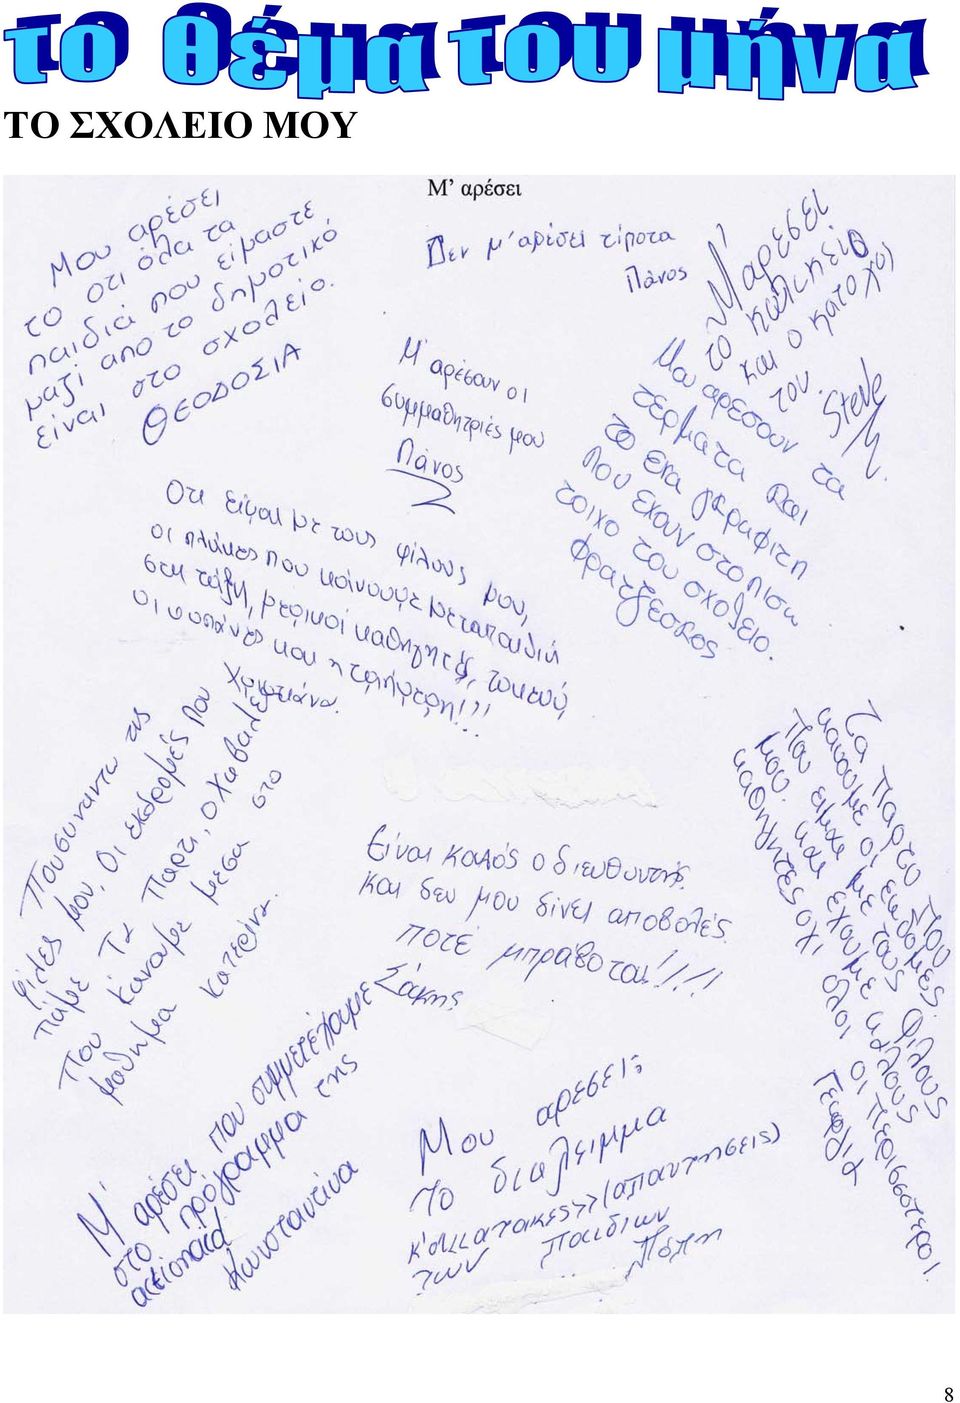 το θέμα του μήνα
ΤΟ ΣΧΟΛΕΙΟ ΜΟΥ
Μ’ αρέσει
Μου αρέσει
το οτι όλα τα
παιδιά που είμαστε
μαζί απο το δημοτικό
είναι στο σχολείο.
ΘΕΟΔΟΣΙΑ
Δεν μ'αρέσει τίποτα
Πάνος
Μ'αρέσει
το κυλικείο
και ο κατοχος
του.
Steve
Μ.
Μ'αρέσουν οι
συμμαθητριές μου
Πάνος
Μου αρεσουν τα
τερματα και
το εκα γκραφιτη
που εχουν στο πισω
τοιχο του σχολειο.
Φρατζεσκος
Οτι είμαι με τους φίλους μου,
οι πλάκες που κάνουμε μεταπαιδιά
στη τάξη, μερικοί καθηγητές,
οι κοπάνες και η τριήμερη!!!
Χριστιάνα.
Που συναντω τις
φίλες μου, Οι εκδρομές που
πάμε Τα Παρτι, ο Χαβαλές
που κάναμε μεσα στο
μαθημα Κατερίνα.
Είναι καλός ο διευθυντής.
και δεν μου δίνει αποβολές
ποτέ μπράβο του!!!!
Σάκης
Τα παρτυ που
κανουμε οι εκδομες.
Που ειμαι με τους Φιλους
μου. και εχουμε καλους
καθηγητες οχι ολοι οι περισσοτεροι.
Γεωργία
Μ' αρέσει που συμμετέχουμε
στο πρόγραμμα της
actionaid
Κωνσταντίνα
Μου αρεσει:
Το διαλειμμα
κ'οι ατακες (απαντησεις)
των παιδιων
Πόπη
8